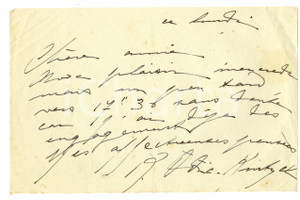 ce lundi
Chère amie
Avec plaisir mercredi
mais un peu tard
vers 17h 30 sans doute
car j'ai déjà des
engagements
Mes affectueuses pensées